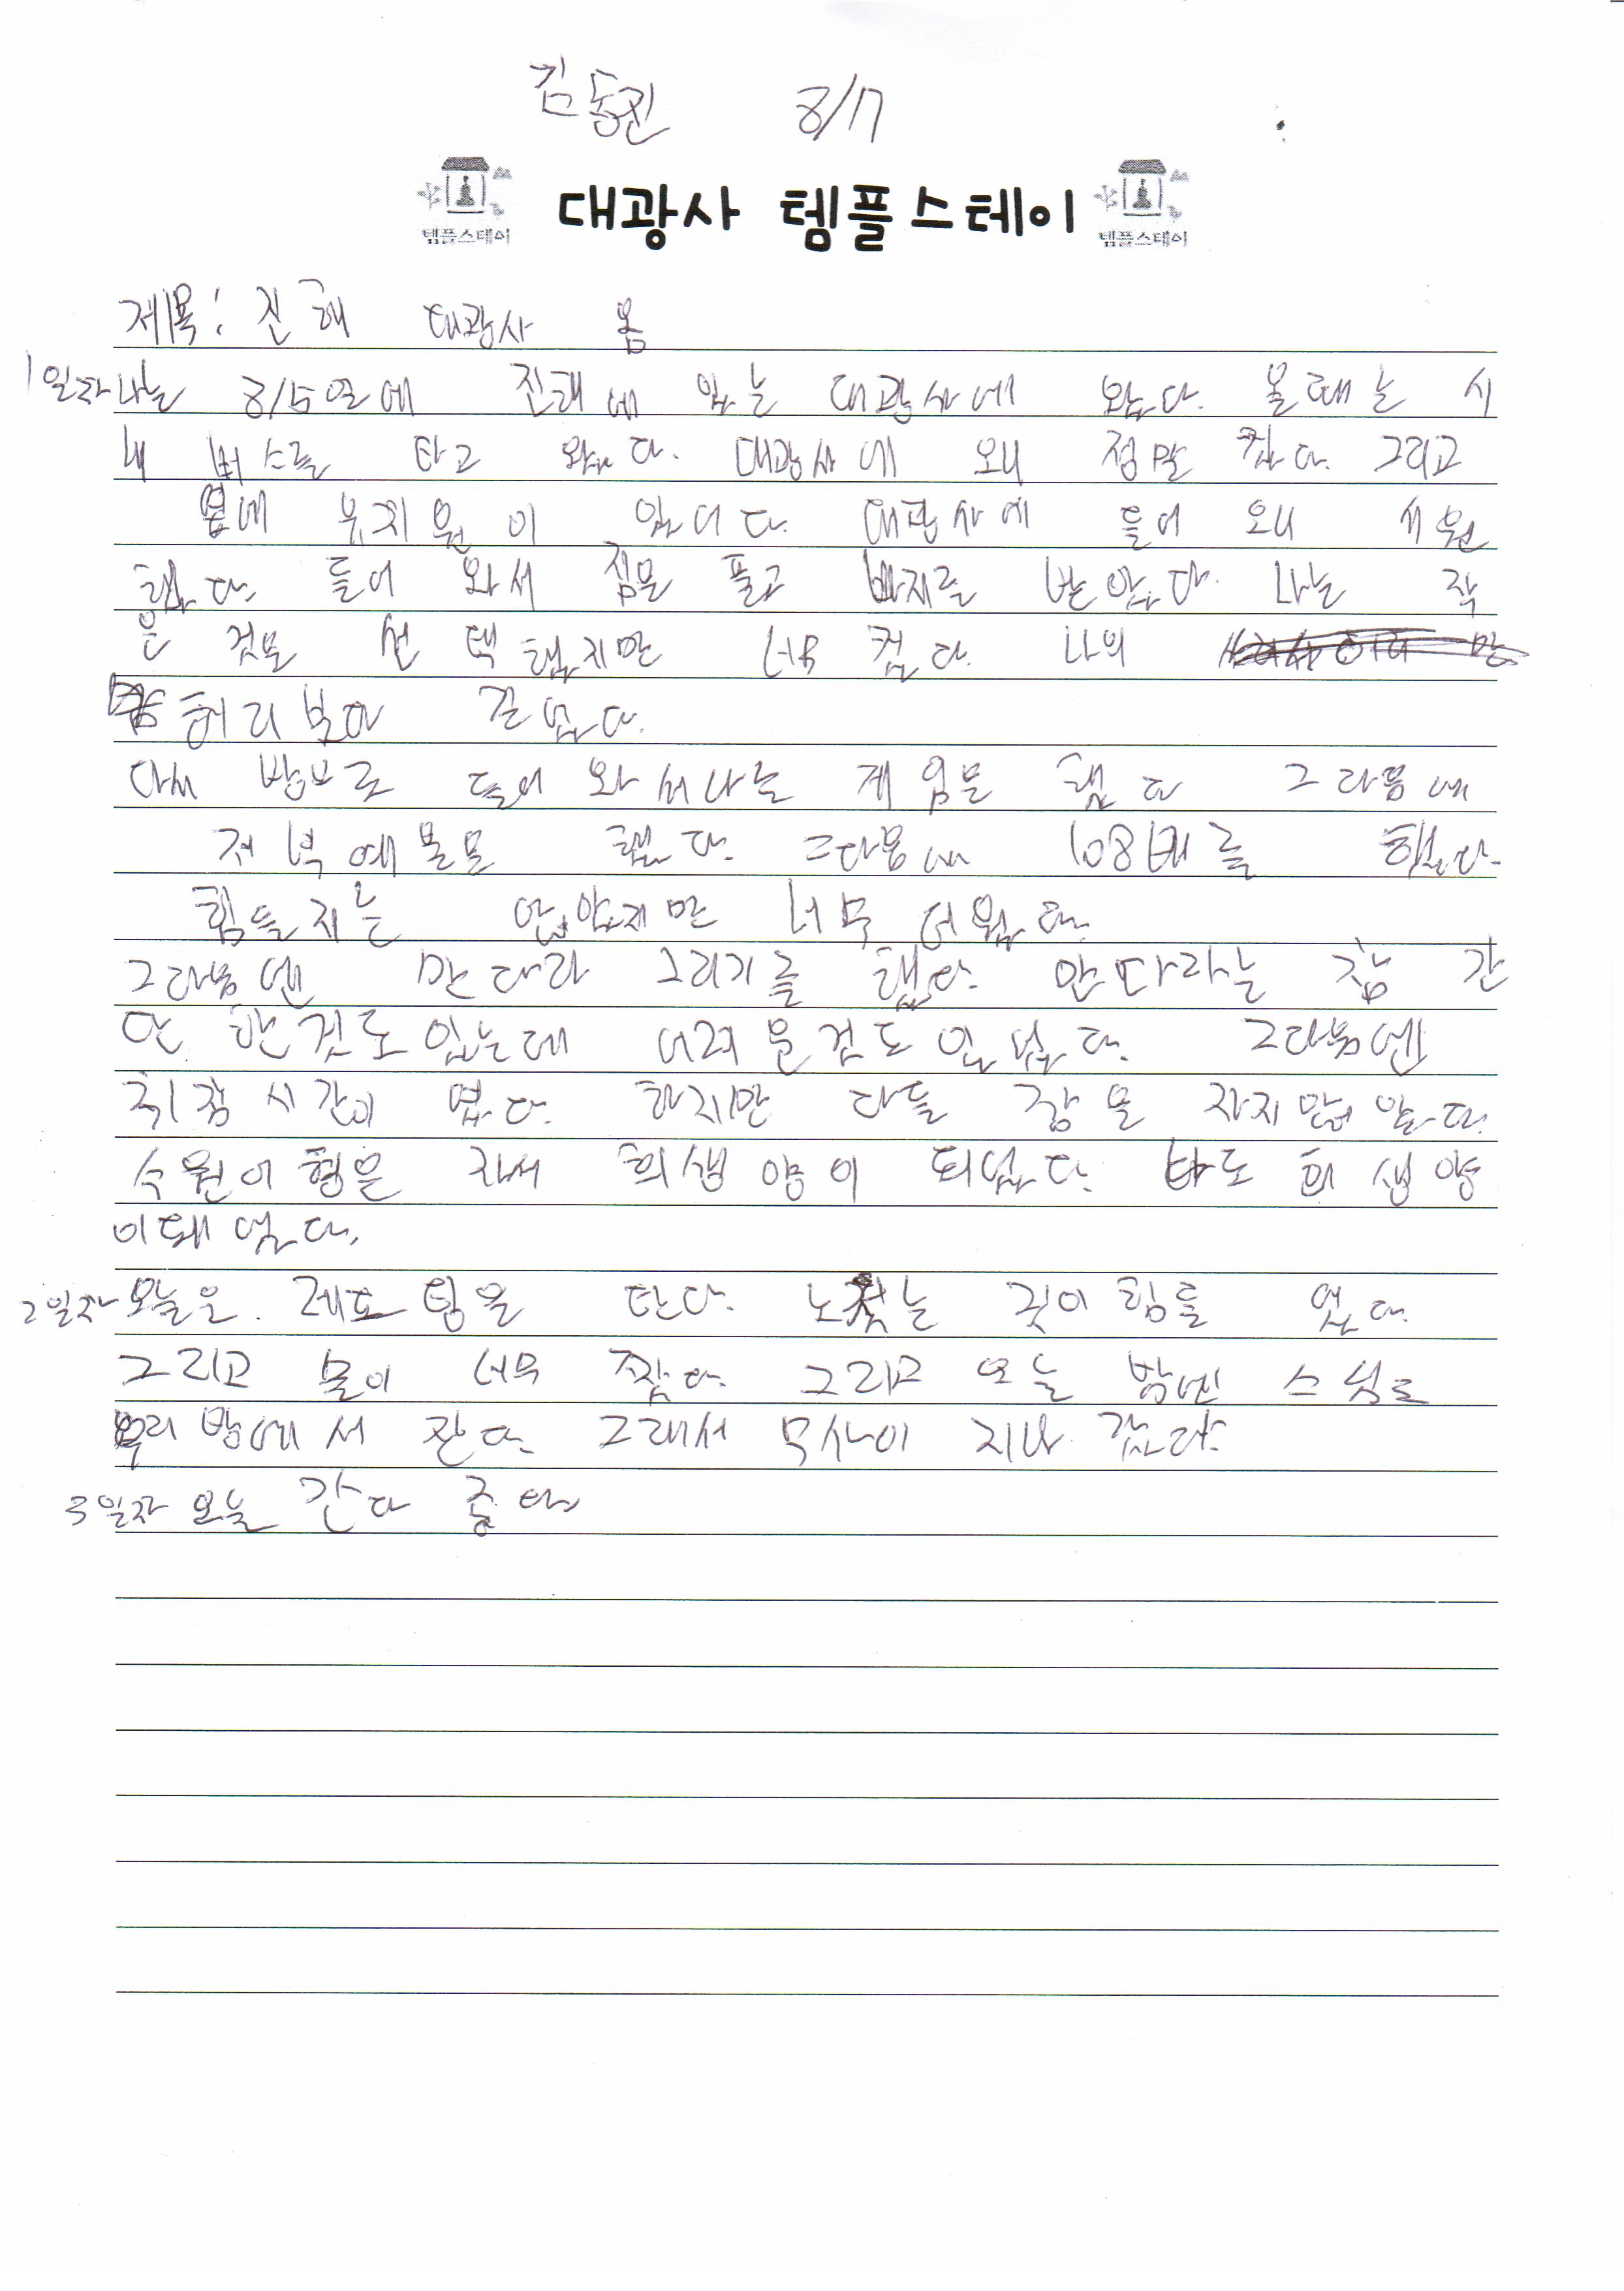 김동진 8/7
템플스테이 대광사 템플스테이 템플스테이
제목: 진해 대광사 옴
1일차 나는 8/5일에 진해에 있는 대광사에 왔다. 올때는 시
내 버스를 타고 왔다. 대광사에 오니 정말 컸다. 그리고
옆에 유치원이 있더다. 대광사에 들어 오니 시원
했다. 들어 와서 짐을 풀고 바지를 받았다. 나는 작
은 것을 선택했지만 너무 컸다. 나의
허리보다 길었다.
다시 방으로 들어 와서 나는 게임을 했다 그 다음에
저녁 예불을 했다. 그다음에 108배를 했다.
힘들지는 안았지만 너무 더웠다.
그다음엔 만다라 그리기를 했다. 만다라는 참 간
단 한것도 있는데 어려운것도 있었다. 그다음엔
취침 시간이 였다. 하지만 다들 잠을 자지 않았다.
수원이형은 자서 희생양이 되었다. 나도 희생양
이 돼었다.
2일차 오늘은 레프팅을 탄다. 노 젓는 것이 힘들 었다.
그리고 물이 너무 짰다. 그리고 오늘 밤엔 스님도
우리 방에서 잔다. 그래서 무사이 지나 갔다.
3일차 오늘 간다 좋다